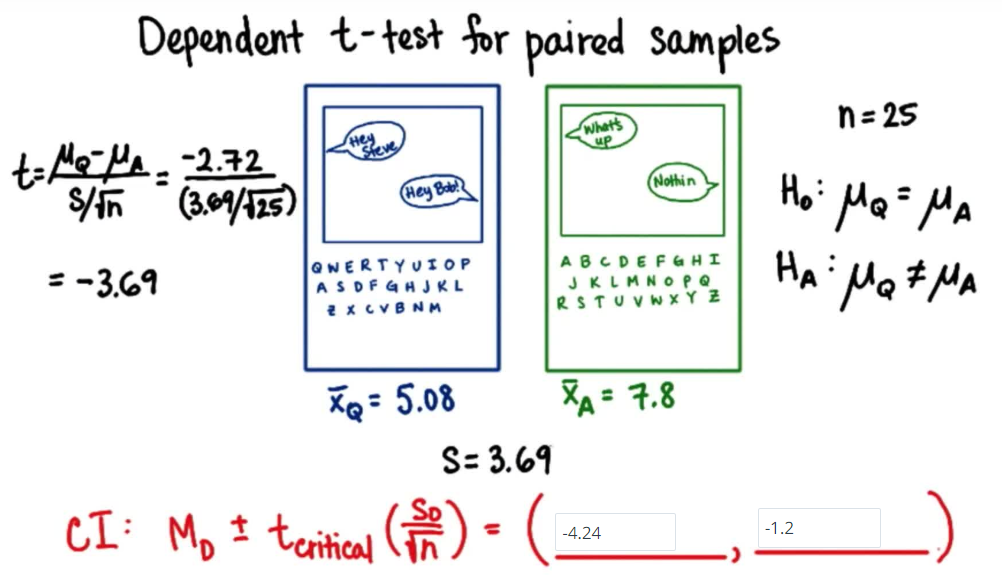 Dependent t-test for paired samples
n = 25
t = μQ - μA / S/√n = -2.72 / (3.69/√25)
= -3.69
Hey Steve
Hey Bob!
Q W E R T Y U I O P
A S D F G H J K L
Z X C V B N M
x̄Q = 5.08
What's up
Nothin
A B C D E F G H I
J K L M N O P Q
R S T U V W X Y Z
x̄A = 7.8
H₀: μQ = μA
HA: μQ ≠ μA
S = 3.69
CI: MD ± tcritical (SD/√n) = ( -4.24 , -1.2 )